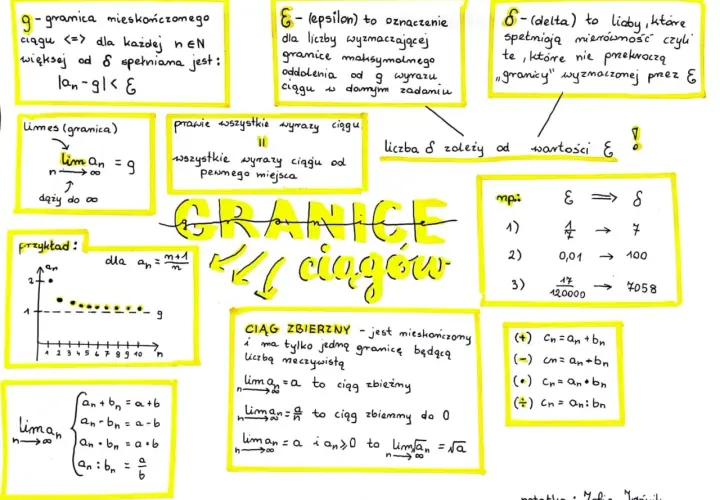 g - granica nieskończonego
ciągu <=> dla każdej n ∈ N
większej od δ spełniana jest:
|an - g| < ε
ε - (epsilon) to oznaczenie
dla liczby wyznaczającej
granice maksymalnego
oddalenia od g wyrazu
ciągu w danym zadaniu
δ - (delta) to liczby, które
spełniają nierówność czyli
te, które nie przekroczą
"granicy" wyznaczonej przez ε
limes (granica)
lim an = g
n → ∞
dąży do ∞
prawie wszystkie wyrazy ciągu
=
wszystkie wyrazy ciągu od
pewnego miejsca
liczba δ zależy od wartości ε !
GRANICE
ciągów
np: ε ⇒ δ
1) 1/7 → 7
2) 0,01 → 100
3) 17/120000 → 7058
przykład:
dla an = n+1/n
an
2
1
g
1 2 3 4 5 6 7 8 9 10 n
CIĄG ZBIERZNY - jest nieskończony
i ma tylko jedną granicę będącą
liczbą rzeczywistą
lim an = a to ciąg zbieżny
n → ∞
to ciąg zbierzny do 0
n → ∞
lim an = a i an ⩾ 0 to lim √an = √a
n → ∞ n → ∞
(+) cn = an + bn
(-) cn = an - bn
(•) cn = an • bn
(÷) cn = an : bn
lim an
n → ∞
an + bn = a + b
an - bn = a - b
an • bn = a • b
an : bn = a/b
notatka: Zofia